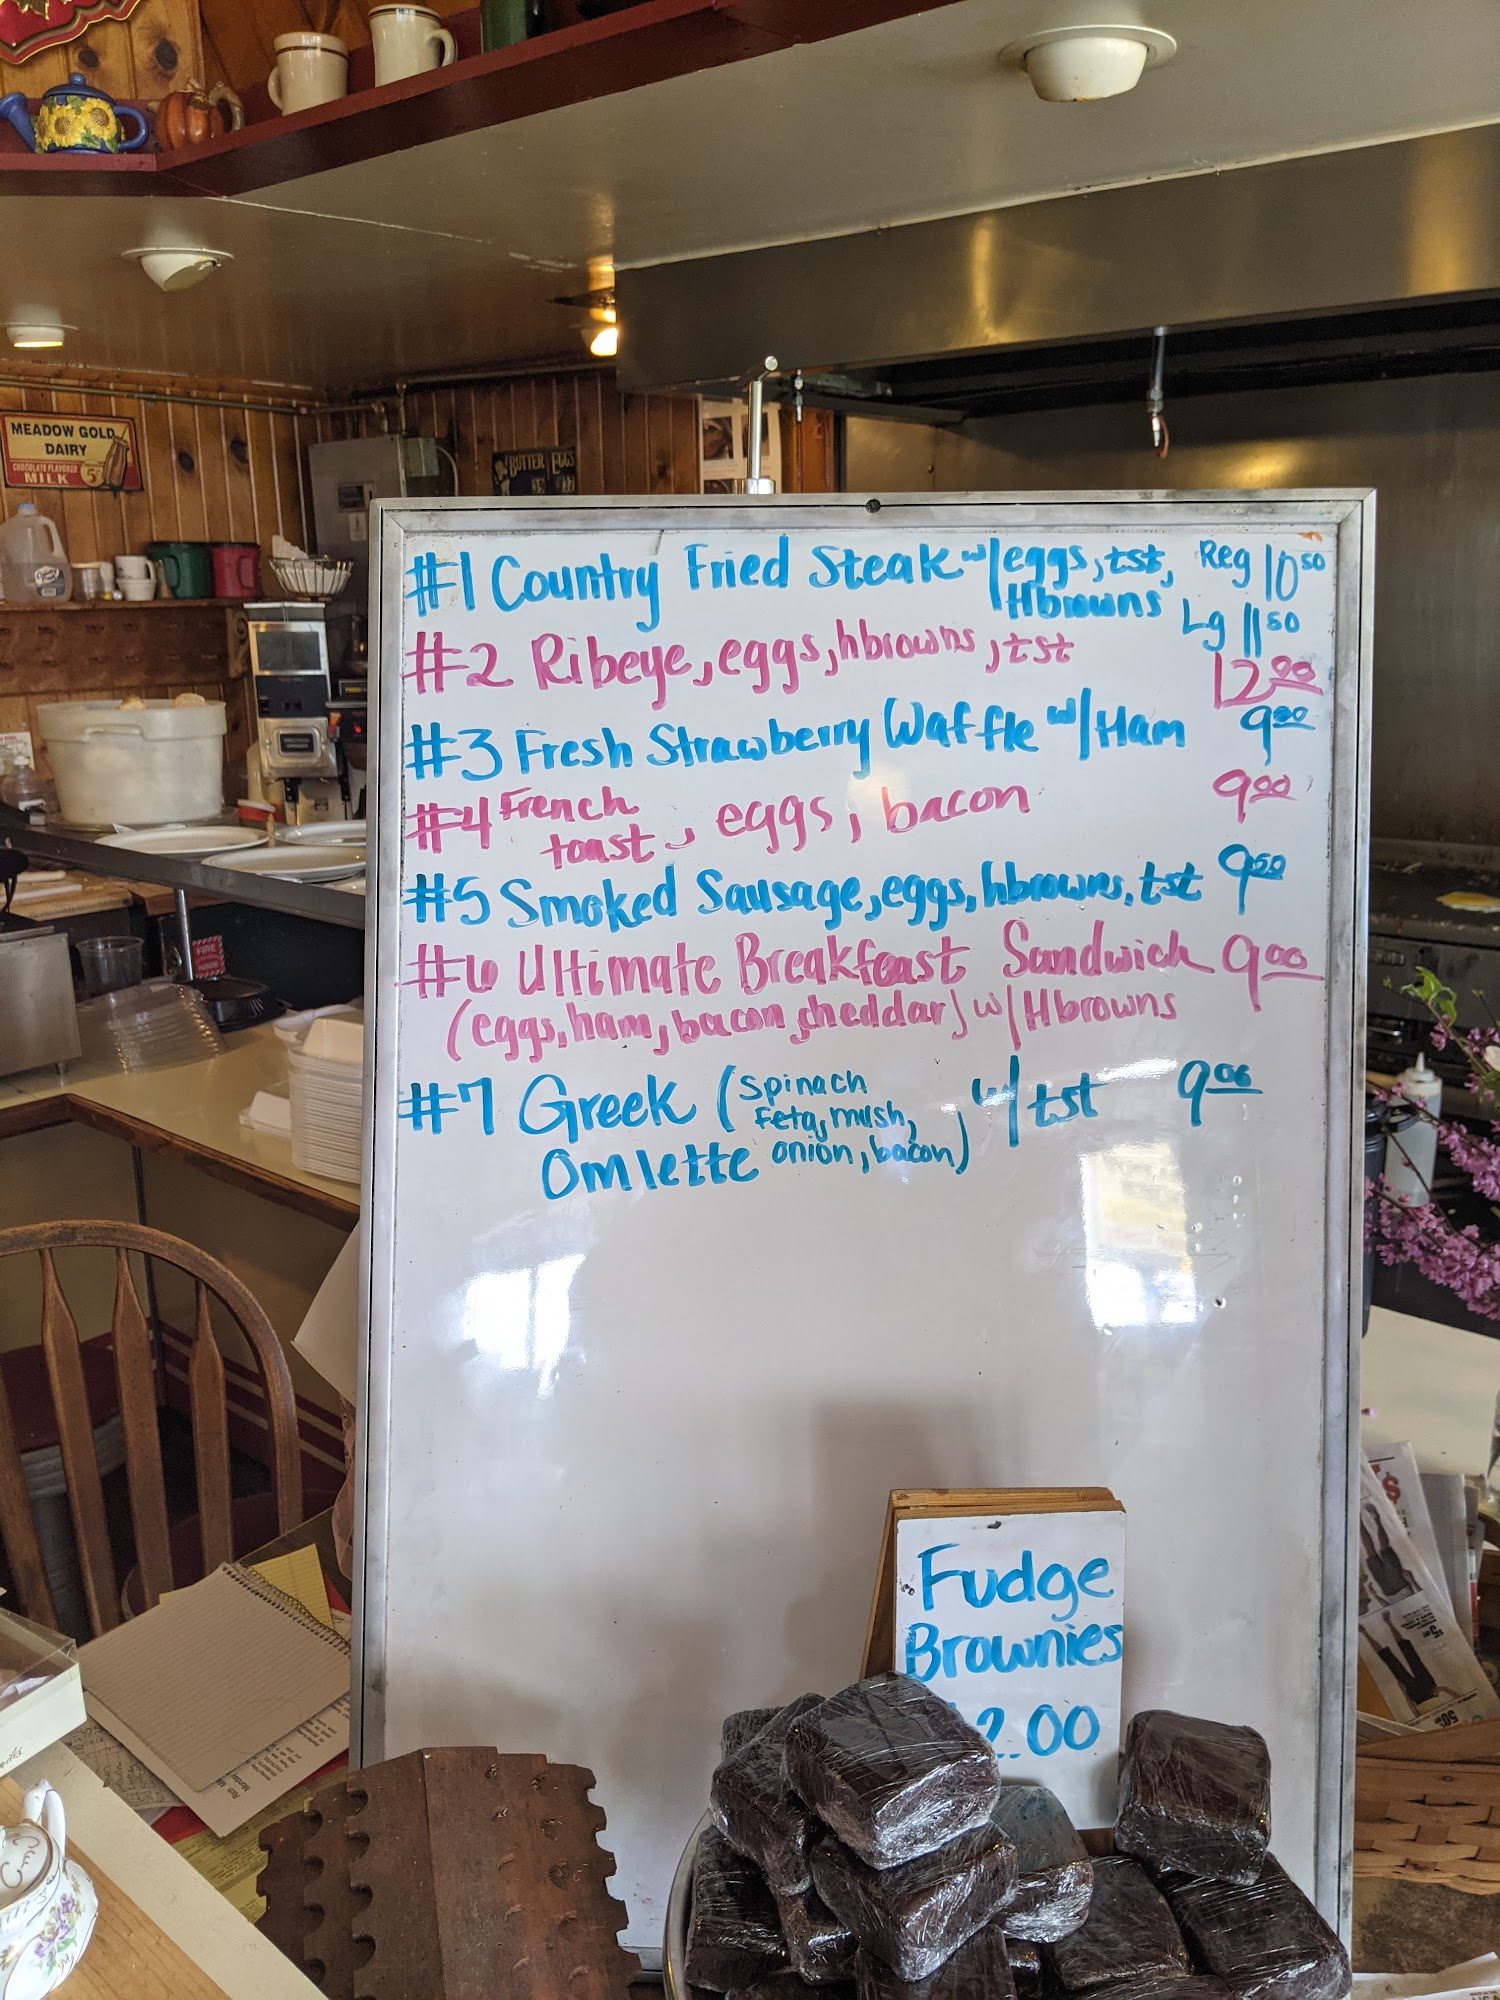 MEADOW GOLD
DAIRY
CHOCOLATE FLAVORED
MILK 5¢
BUTTER EGGS
FIRE
#1 Country Fried Steak w/eggs, tst, Reg 10 50
Hbrowns Lg 11 50
#2 Ribeye, eggs, hbrowns, tst 12 00
#3 Fresh Strawberry Waffle w/Ham 9 00
#4 French toast, eggs, bacon 9 00
#5 Smoked Sausage, eggs, hbrowns, tst 9 50
#6 Ultimate Breakfast Sandwich 9 00
(eggs, ham, bacon, cheddar) w/Hbrowns
#7 Greek Omlette (spinach
feta, mush,
onion, bacon), w/tst 9 00
Fudge
Brownies
2.00